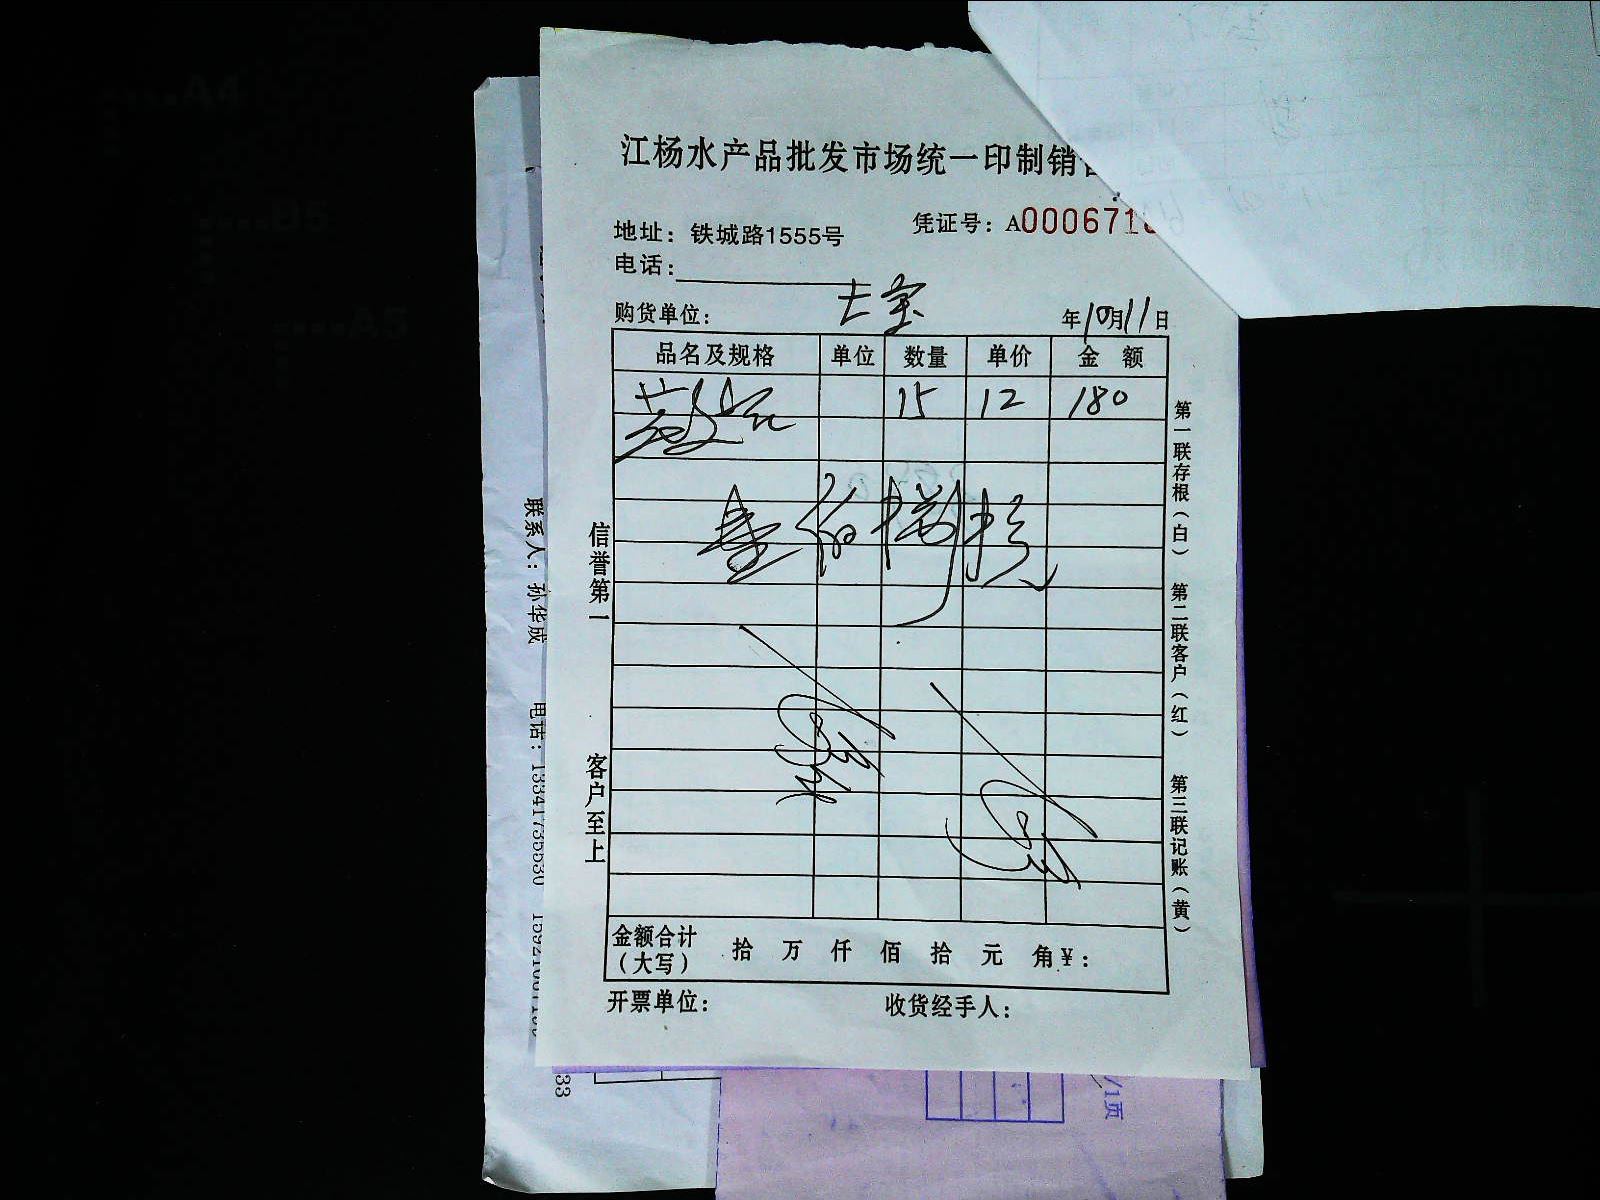 江杨水产品批发市场统一印制销
凭证号：A000671
地址：铁城路1555号
电话：
购货单位：
年10月11日
品名及规格 单位 数量 单价 金 额
15 12 180
壹佰捌拾
信誉第一 客户至上
第一联存根（白） 第二联客户（红） 第三联记账（黄）
金额合计（大写） 拾 万 仟 佰 拾 元 角 ¥：
开票单位： 收货经手人：
联系人：孙华成 电话：13341735530
33
/1页